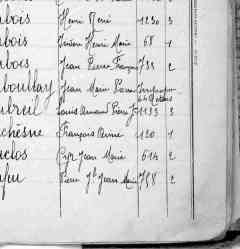 bois Henri René 1230 3
ubois Henri Marie 68 1
ubois Jean Pierre François 788 2
uboullay Jean Marie Pierre
utreil Louis Armand Pierre J 1133 3
uchêsne François Aimé 120 1
uclos Jean Marie 614 2
ufeu Pierre Jh Jean Marie 788 2